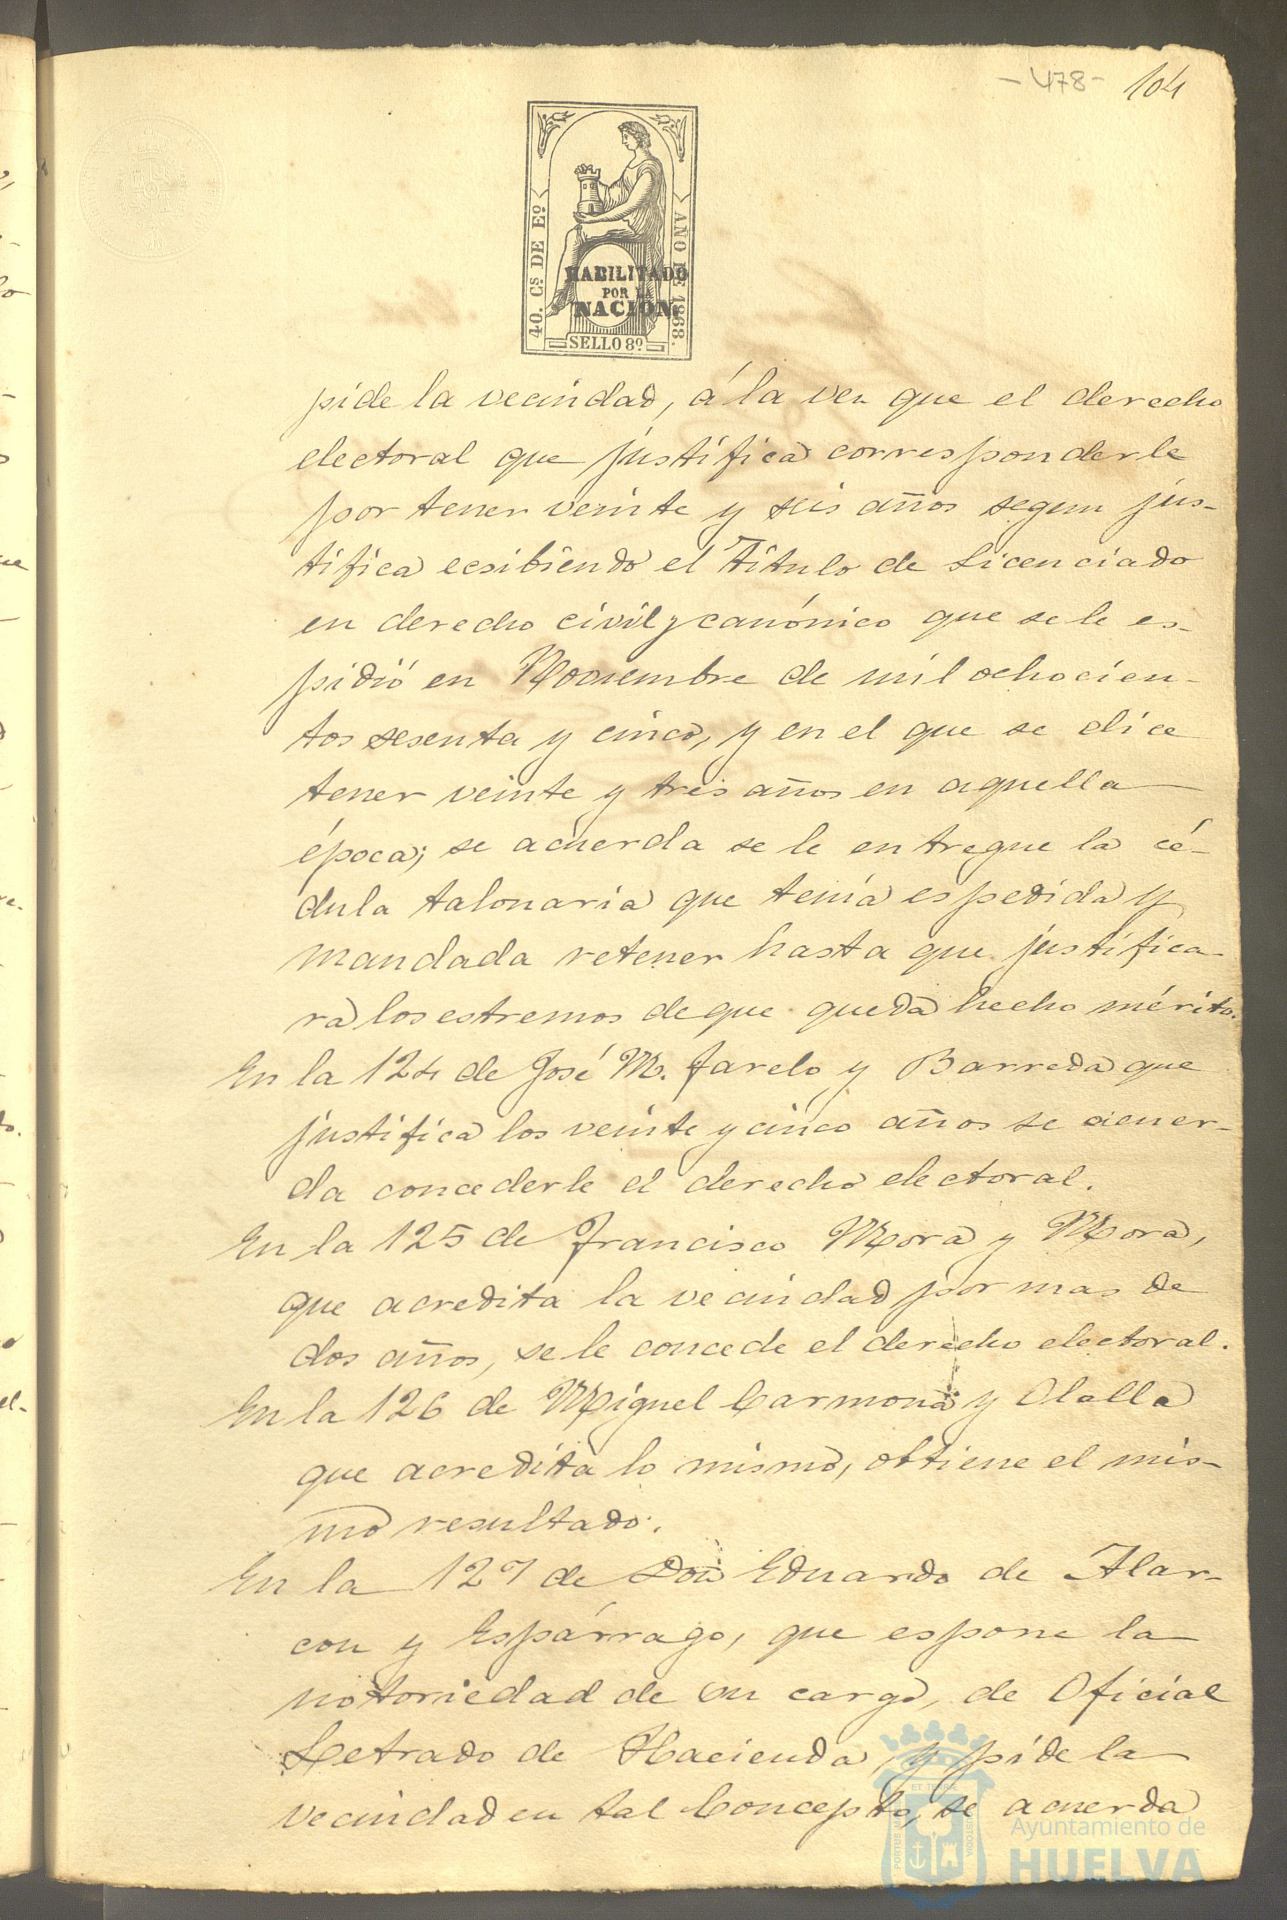 -478- 104
40. Cs DE Eº
AÑO DE 1868.
HABILITADO
POR LA
NACION.
SELLO 8º
pide la vecindad, á la vez que el derecho
electoral que justifica corresponderle
por tener veinte y seis años segun jus-
tifica ecsibiendo el Título de Licenciado
en derecho civil y canónico que se le es-
pidió en Noviembre de mil ochocien-
tos sesenta y cinco, y en el que se dice
tener veinte y tres años en aquella
época; se acuerda se le entregue la cé-
dula talonaria que tenía espedida y
mandada retener hasta que justifica-
ra los estremos de que queda hecho mérito.
En la 124 de José M. Jarelo y Barreda que
justifica los veinte y cinco años se acuer-
da concederle el derecho electoral.
En la 125 de Francisco Mora y Mora,
que acredita la vecindad por mas de
dos años, se le concede el derecho electoral.
En la 126 de Miguel Carmona y Olalla
que acredita lo mismo, obtiene el mis-
mo resultado.
En la 127 de Don Eduardo de Alar-
con y Espárrago, que espone la
notoriedad de su cargo, de Oficial
Letrado de Hacienda, y pide la
vecindad en tal Concepto, se acuerda
Ayuntamiento de
HUELVA